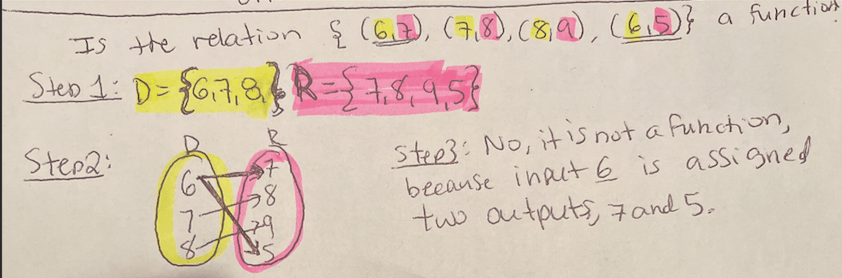 Is the relation { (6,7), (7,8), (8,9), (6,5)} a function
Step 1: D = {6,7,8,} R = {7,8,9,5}
Step2:
D R
6 7
7 8
8 9
5
Step3: No, it is not a function,
because input 6 is assigned
two outputs, 7 and 5.